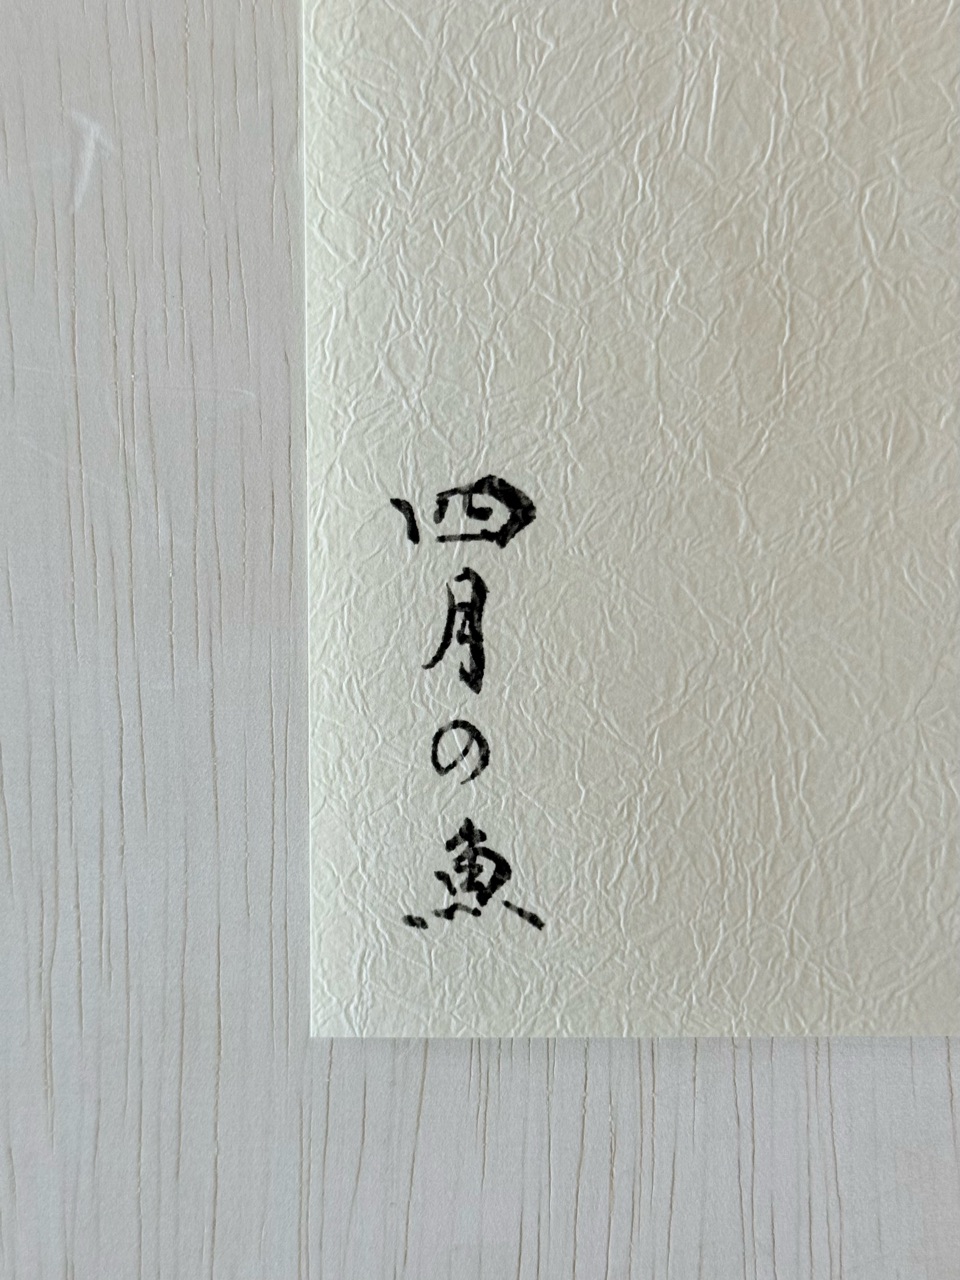 四月の魚